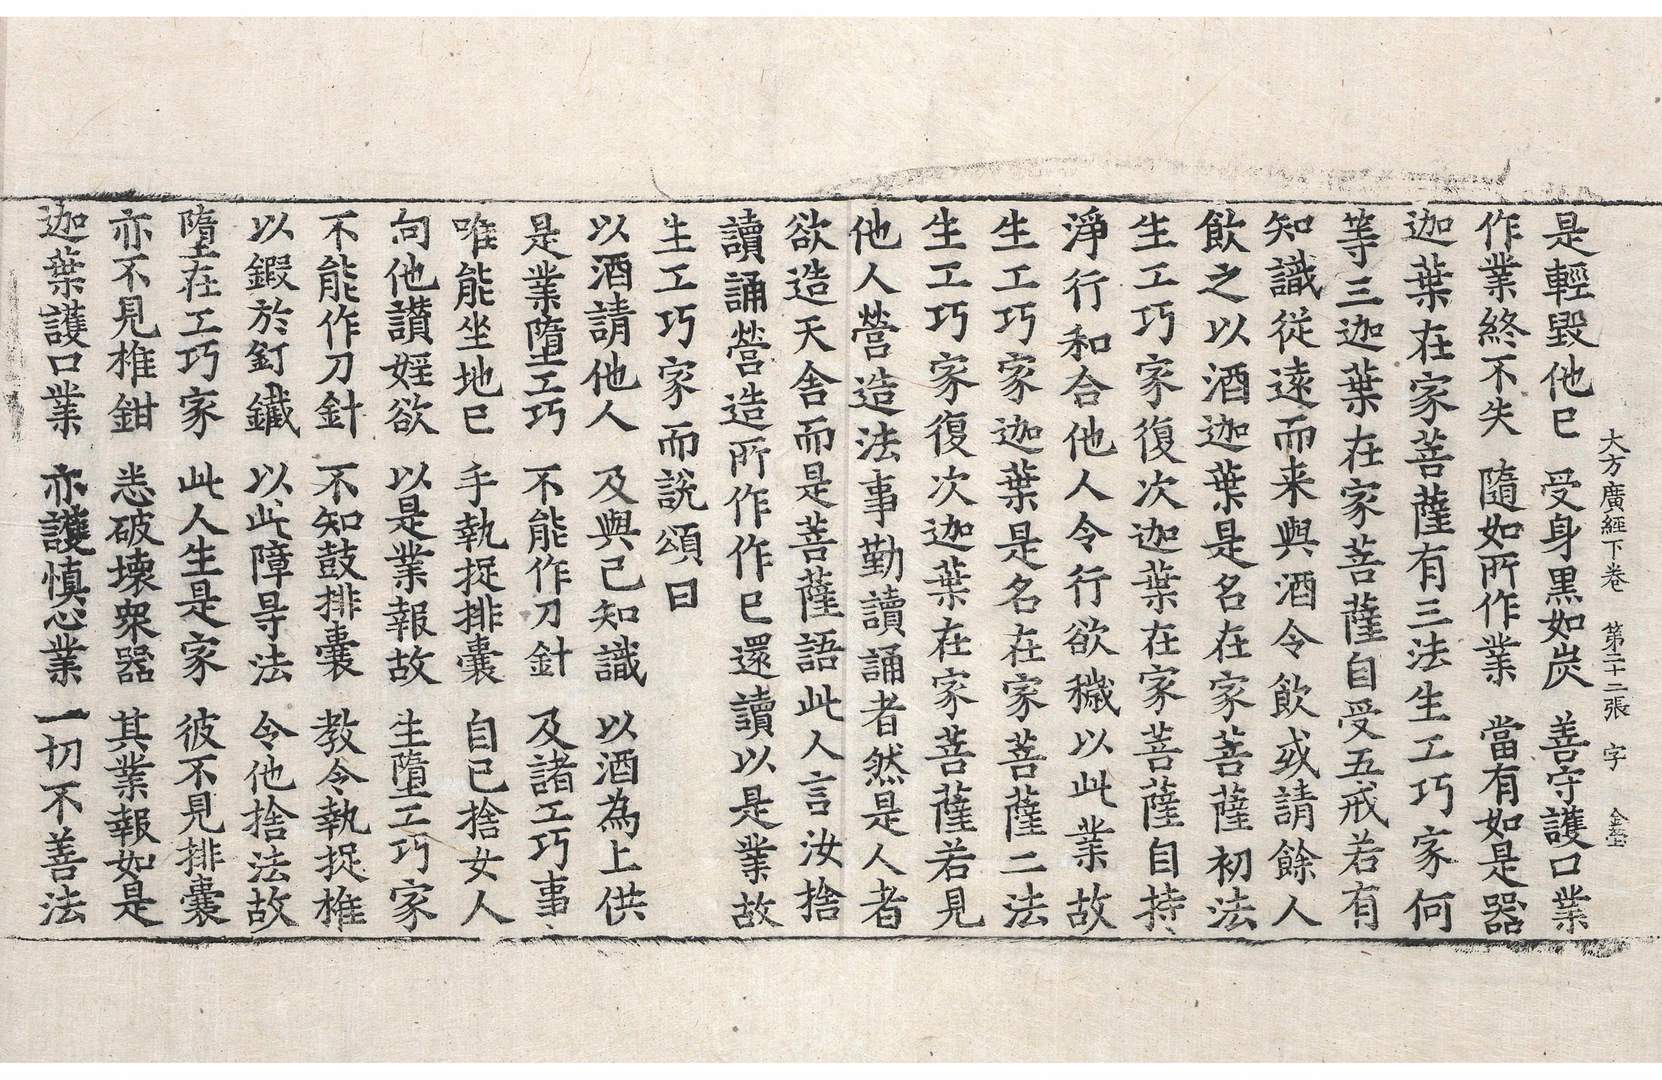 大方廣經下卷　第三十二張　字　金瑩
是輕毀他已　受身黑如炭　善守護口業
作業終不失　隨如所作業　當有如是器
迦葉在家菩薩有三法生工巧家何
等三迦葉在家菩薩自受五戒若有
知識從遠而来與酒令飲或請餘人
飲之以酒迦葉是名在家菩薩初法
生工巧家復次迦葉在家菩薩自持
淨行和合他人令行欲穢以此業故
生工巧家迦葉是名在家菩薩二法
生工巧家復次迦葉在家菩薩若見
他人營造法事勤讀誦者然是人者
欲造天舍而是菩薩語此人言汝捨
讀誦營造所作作已還讀以是業故
生工巧家而說頌曰
以酒請他人　及與己知識　以酒為上供
是業墮工巧　不能作刀針　及諸工巧事
唯能坐地已　手執捉排囊　自己捨女人
向他讃婬欲　以是業報故　生墮工巧家
不能作刀針　不知鼓排囊　教令執捉椎
以鍜於釘鐵　以此障㝵法　令他捨法故
墮在工巧家　此人生是家　彼不見排囊
亦不見椎鉗　恙破壞眾器　其業報如是
迦葉護口業　亦護慎心業　一切不善法